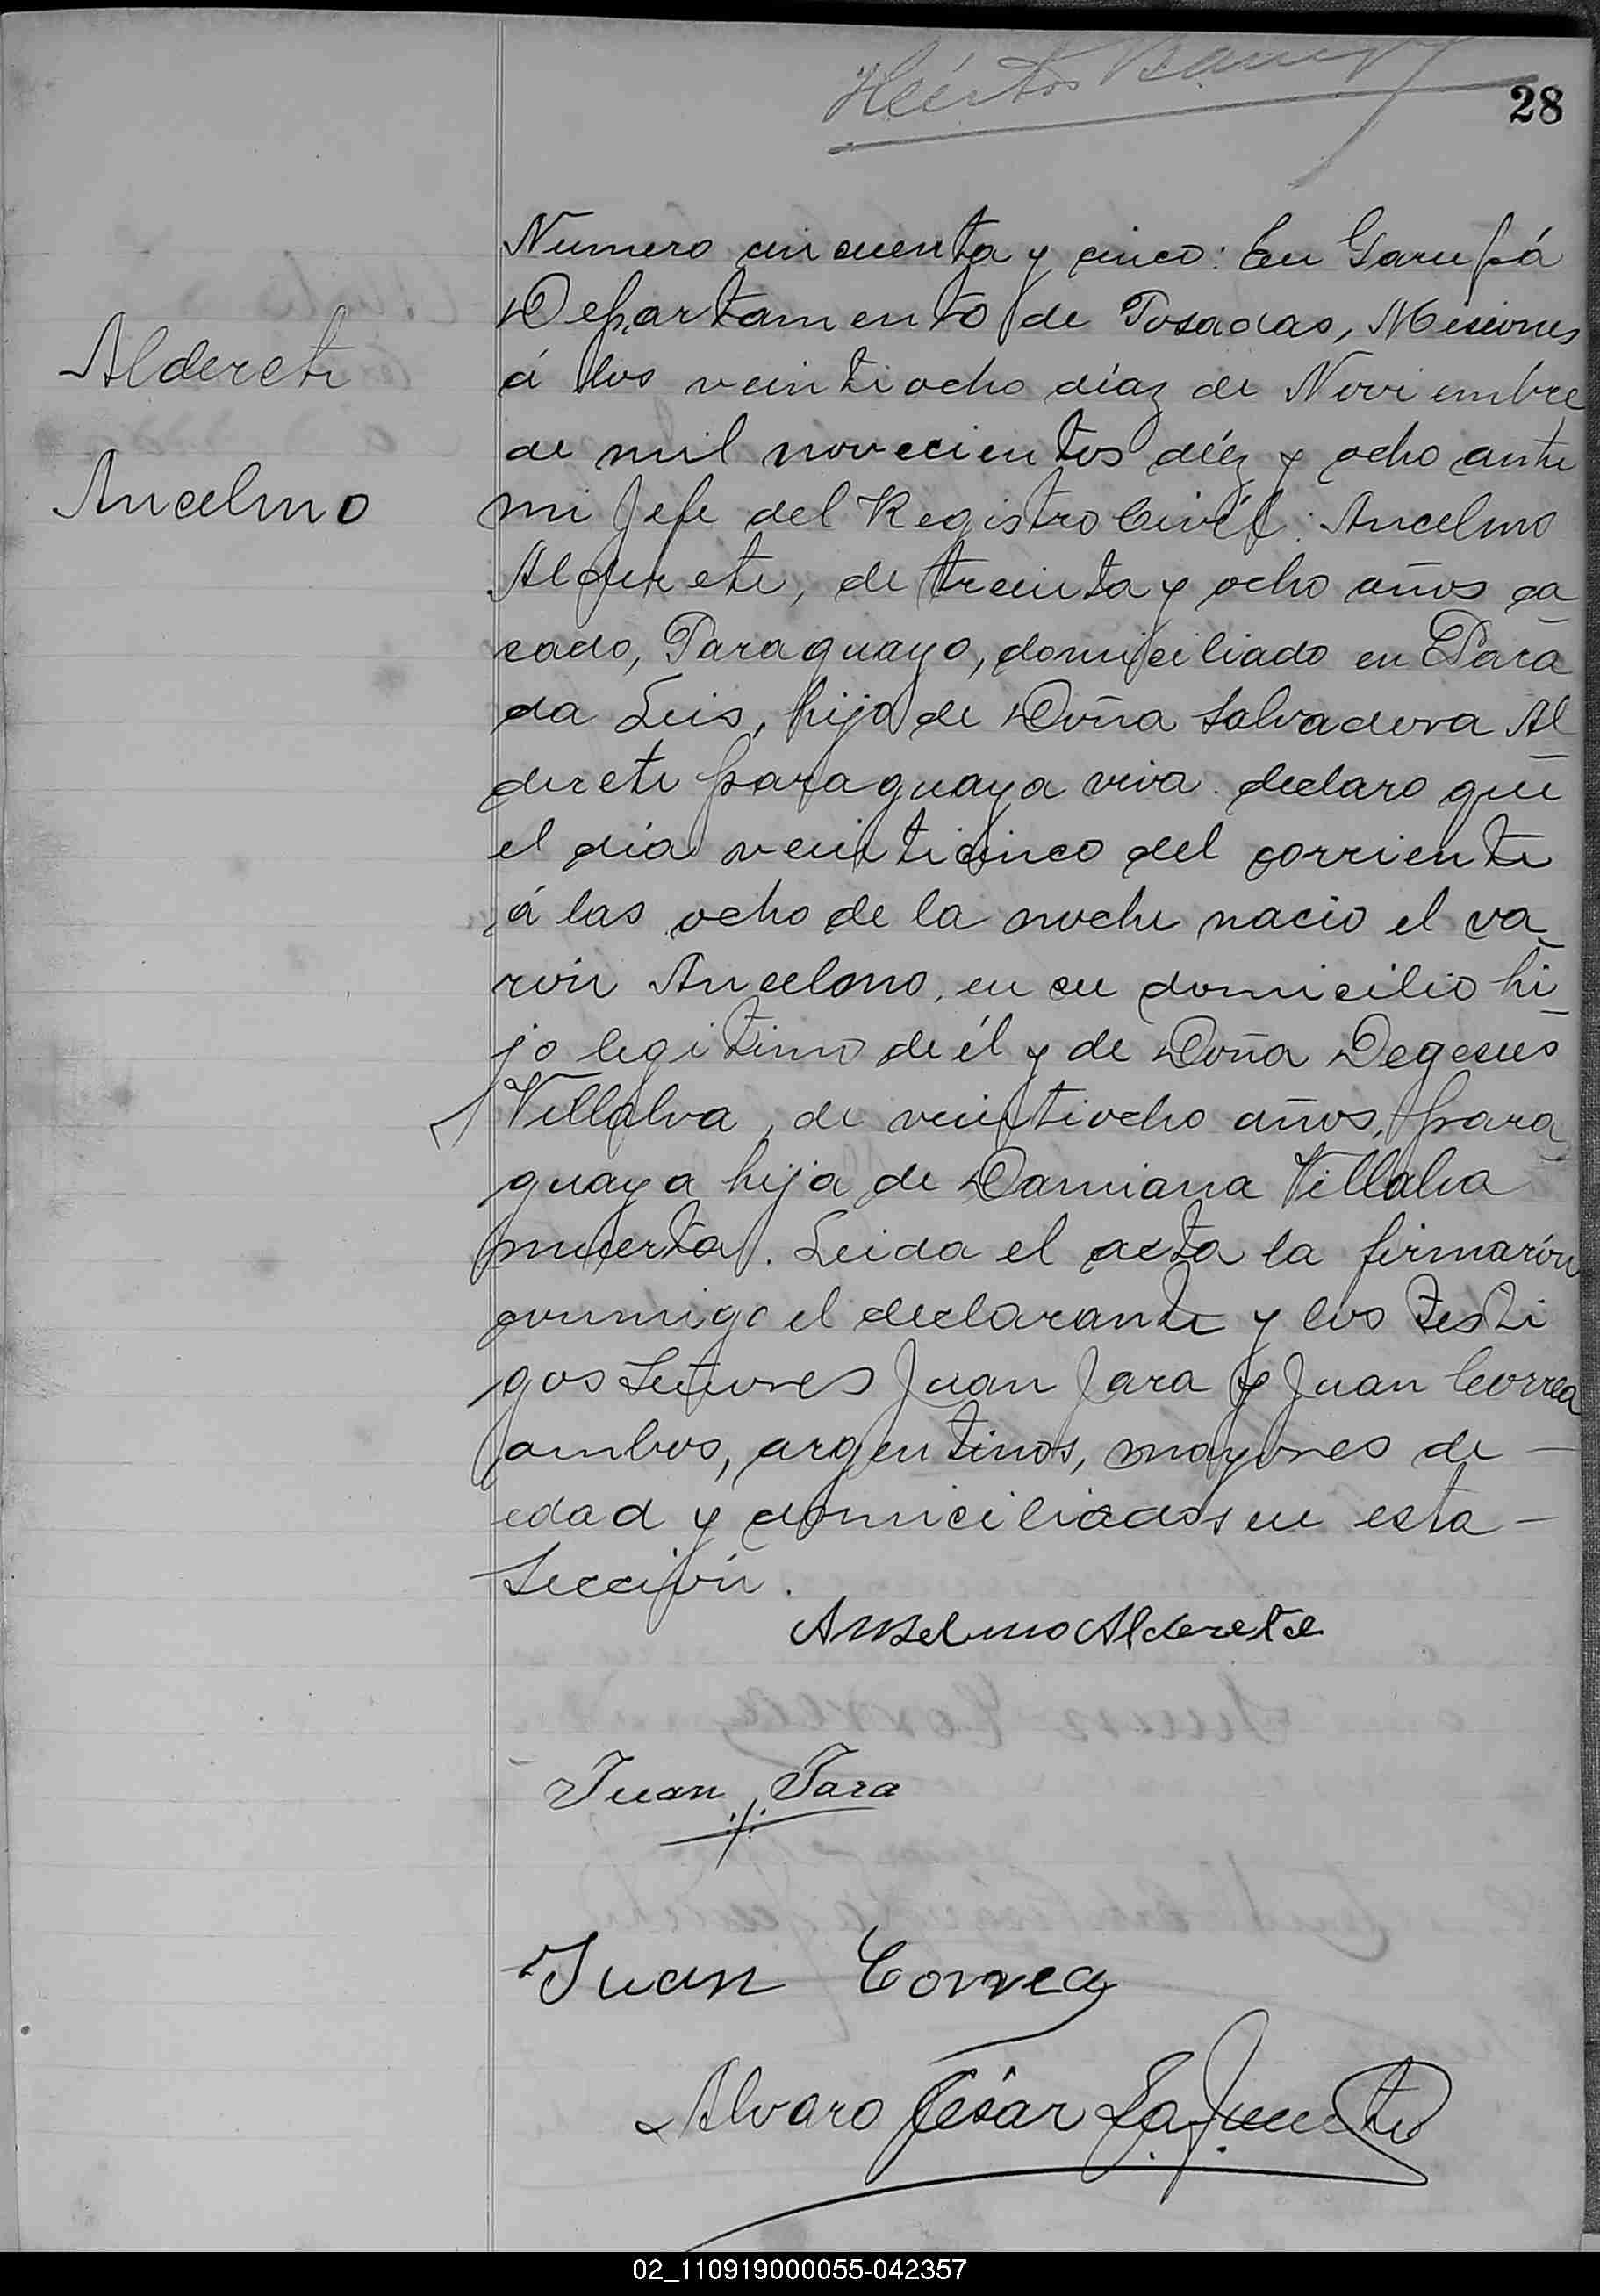 Héctor
28
Alderete
Ancelmo
Numero cincuenta y cinco: En Garupá
Departamento de Posadas, Misiones
á los veintiocho díaz de Noviembre
de mil novecientos diéz y ocho ante
mi Jefe del Registro Civíl: Ancelmo
Alderete, de treinta y ocho años ca
sado, Paraguayo, domiciliado en Para
da Leis, hijo de Doña Salvadora Al
derete paraguaya viva. declaro que
el día veinticinco del corriente
á las ocho de la noche nacio el va
rón Ancelmo, en su domicilio hi
jo legitimo de él y de Doña Degesús
Villalva, de veintiocho años, para
guaya hija de Damiana Villalva
muerta. Leida el acta la firmarón
conmigo el declarante y los testi
gos Señores Juan Jara y Juan Correa
ambos, argentinos, mayores de
edad y domiciliados en esta
Sección.
Anselmo Alderete
Juan Jara
Juan Correa
Alvaro César Lafuente
02_110919000055-042357